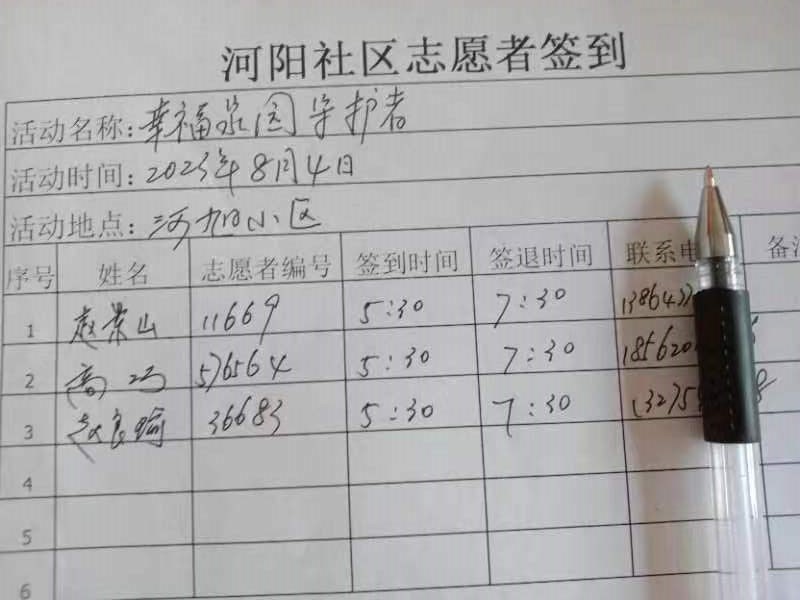 河阳社区志愿者签到
活动名称:幸福家园守护者
活动时间:2023年8月4日
活动地点:河阳小区
序号 姓名 志愿者编号 签到时间 签退时间 联系电 备注
1 赵景山 11669 5:30 7:30 1386427
2 高 576564 5:30 7:30 185620
3 赵良瑜 36683 5:30 7:30 13275 8
4
5
6